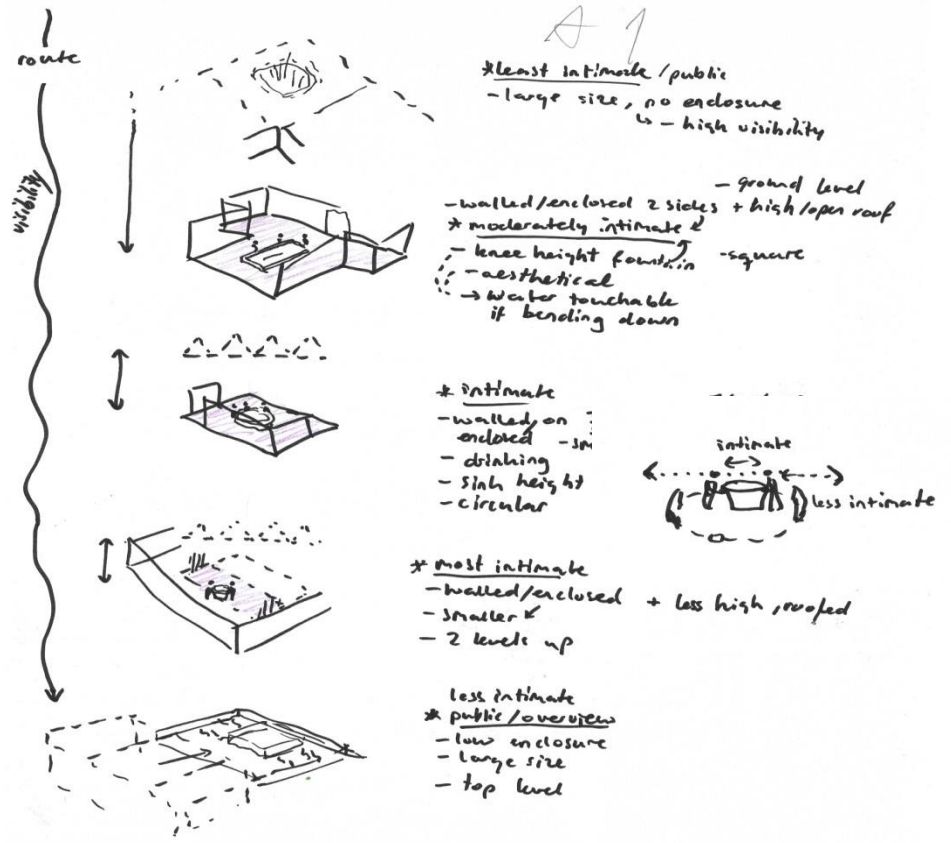 A 1
route
*least intimate/public
- large size, no enclosure
↳ - high visibility
- ground level
- walled/enclosed 2 sides + high/open roof
* moderately intimate
- knee height fountain - square
- aesthetical
→ water touchable
if bending down
* intimate
- walled, on
enclosed - sm
- drinking
- sink height
- circular
intimate
less intimate
* most intimate
- walled/enclosed + less high, roofed
- smaller
- 2 levels up
less intimate
* public/overview
- low enclosure
- large size
- top level